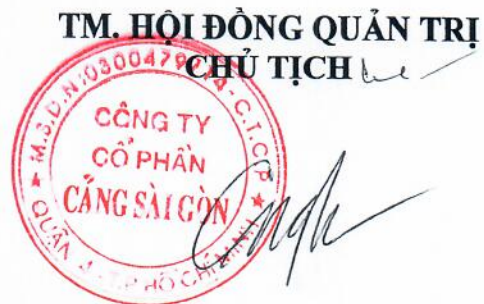 TM. HỘI ĐỒNG QUẢN TRỊ
CHỦ TỊCH
M.S.D.N:03004797
C.T.C.P
CÔNG TY
CỔ PHẦN
CẢNG SÀI GÒN
QUẬN 4 - T.P HỒ CHÍ MINH